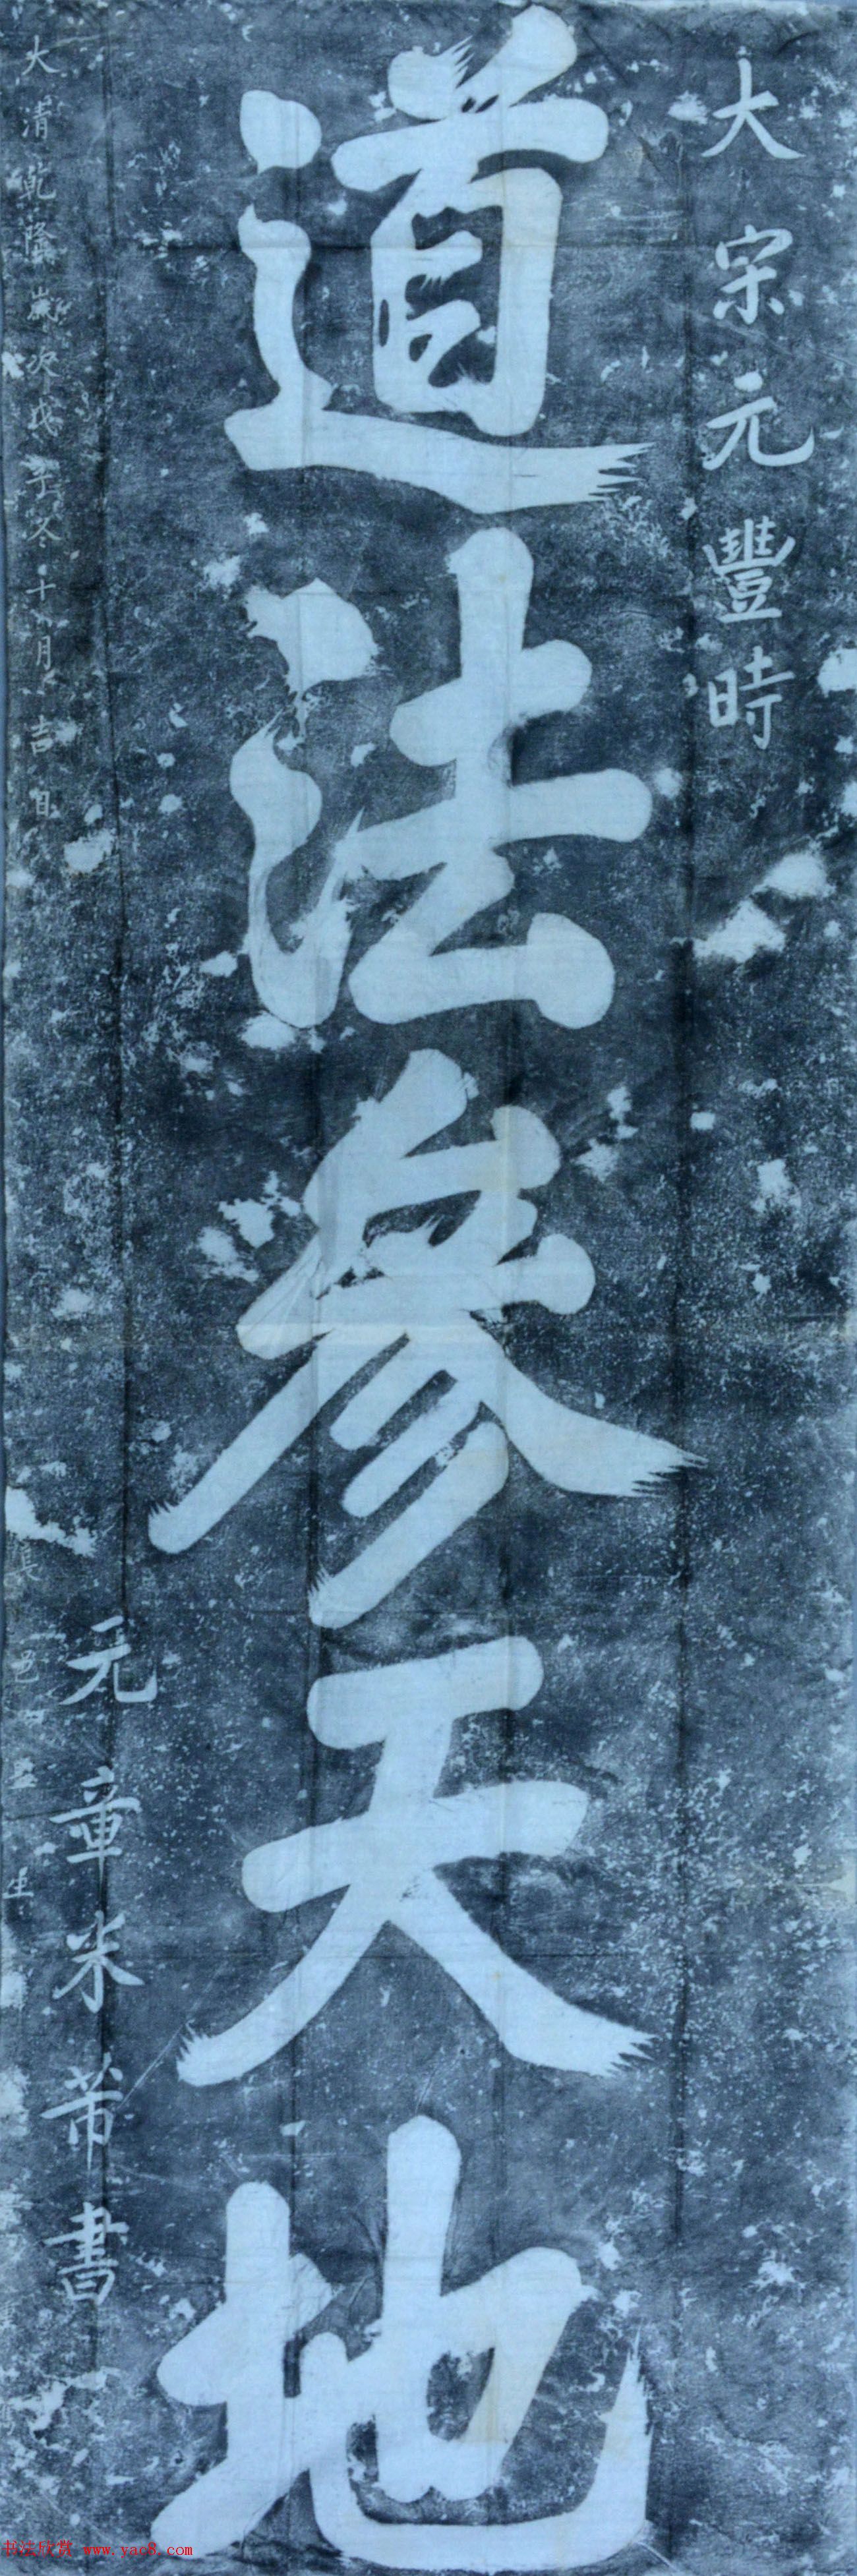 大宋元豐時
道法參天地
元章米芾書
大清乾隆歲次戊子冬十月吉日
书法欣赏 www.yac8.com